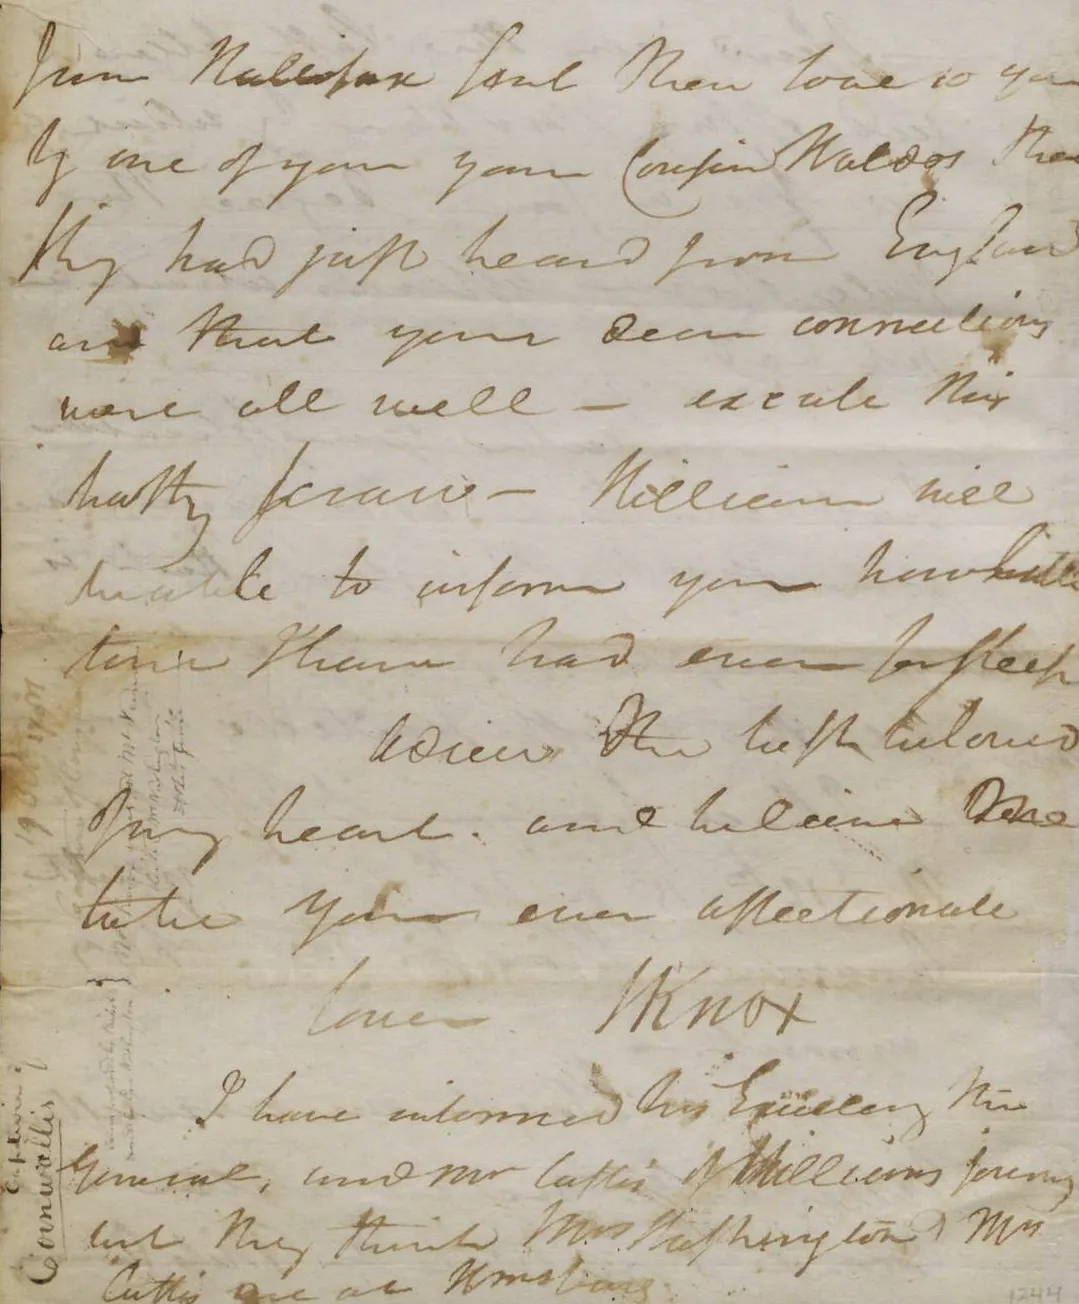 from Hallifax sent their love to you
by one of your your Cousin Waldos that
they had just heard from England
and that your dear connections
were all well – excuse this
hasty scrawl – William will
be able to inform you how little
time I have had even for sleep
Adieu the best beloved
of my heart. and believe me
to be your ever affectionate
lover HKnox
I have informed his Excellency the
General, and Mr Custis of Williams journey
but they think Mrs Washington & Mrs
Custis are at Wmsburg
19 Oct 1781
Capturing
Cornwallis
1244